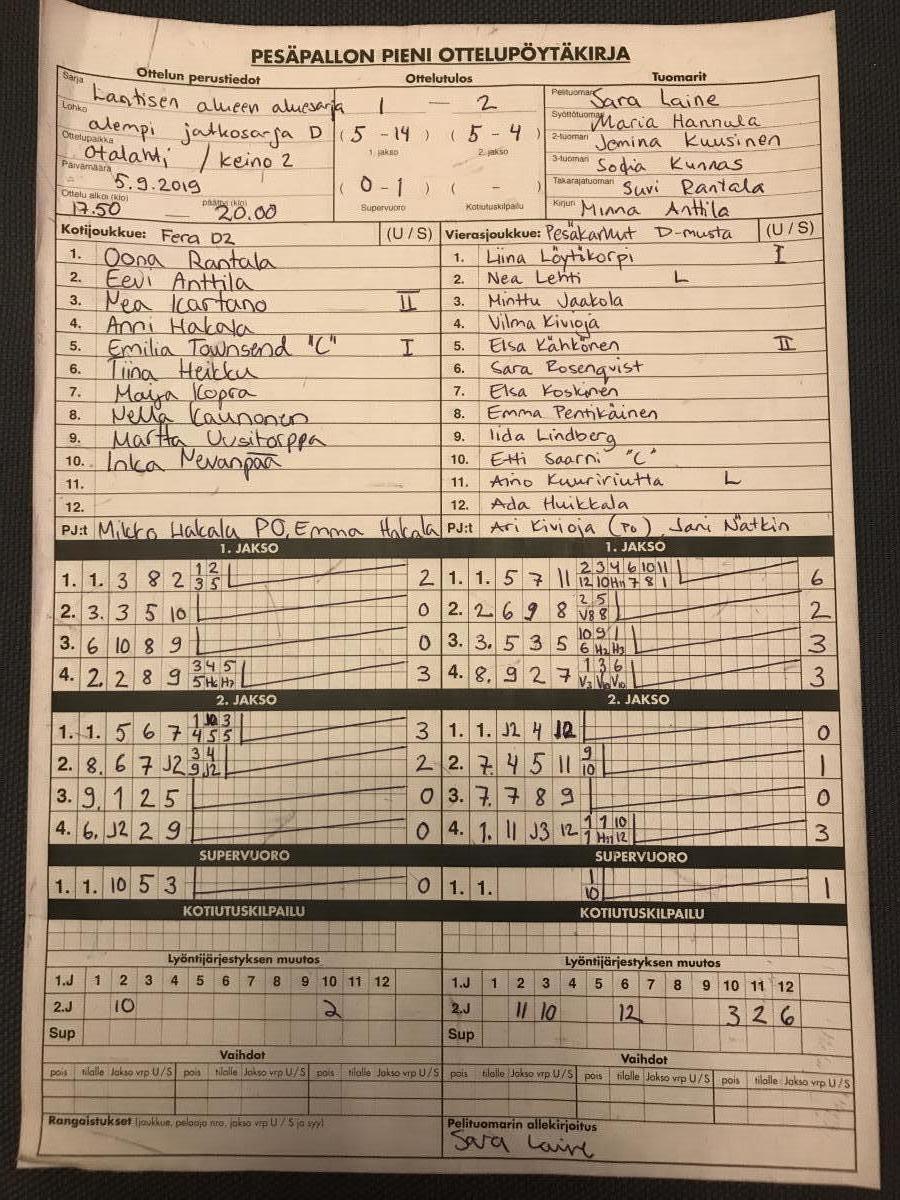 PESÄPALLON PIENI OTTELUPÖYTÄKIRJA
Ottelun perustiedot Ottelutulos Tuomarit
Sarja Läntisen alueen aluesarja 1 — 2 Pelituomari Sara Laine
Lohko alempi jatkosarja D (5 - 14) (5 - 4) Syöttötuomari Maria Hannula
1. jakso 2. jakso 2-tuomari Jemina Kuusinen
Ottelupaikka Otalahti / keino 2 3-tuomari Sofia Kunnas
Päivämäärä 5.9.2019 (0 - 1) ( - ) Takarajatuomari Suvi Rantala
Ottelu alkoi (klo) 17.50 — päättyi (klo) 20.00 Supervuoro Kotiutuskilpailu Kirjuri Minna Anttila
Kotijoukkue: Fera D2 (U / S) Vierasjoukkue: Pesäkarhut D-musta (U / S)
1. Oona Rantala 1. Liina Löytökorpi I
2. Eevi Anttila 2. Nea Lehti L
3. Nea Kartano II 3. Minttu Jaakola
4. Anni Hakala 4. Vilma Kivioja
5. Emilia Townsend "C" I 5. Elsa Kähkönen II
6. Tiina Heikku 6. Sara Rosenqvist
7. Maija Kopra 7. Elsa Koskinen
8. Nella Kaunonen 8. Emma Pentikäinen
9. Martta Uusitorppa 9. Iida Lindberg
10. Inka Nevanpää 10. Etti Saarni "C"
11. 11. Aino Kuuririutta L
12. 12. Ada Huikkala
PJ:t Mikko Hakala PO, Emma Hakala PJ:t Ari Kivioja (PO), Jani Nätkin
1. JAKSO 1. JAKSO
1. 1. 3 8 2 1 2 2 1. 1. 5 7 11 2 3 4 6 10 11 6
3 5 12 10 H11 7 8 1
2. 3. 3 5 10 0 2. 2. 6 9 8 2 5 2
V8 8
3. 6 10 8 9 0 3. 3. 5 3 5 10 9 1 3
6 H2 H3
4. 2. 2 8 9 3 4 5 3 4. 8. 9 2 7 1 3 6 3
5 H6 H7
2. JAKSO 2. JAKSO
1. 1. 5 6 7 1 10 3 3 1. 1. J2 4 12 0
4 5 5
2. 8. 6 7 J2 3 4 2 2. 7. 4 5 11 9 1
9 J2 10
3. 9. 1 2 5 0 3. 7. 7 8 9 0
4. 6. J2 2 9 0 4. 1. 11 J3 12 1 1 10 3
1 H11 12
SUPERVUORO SUPERVUORO
1. 1. 10 5 3 0 1. 1. 1 1
10
KOTIUTUSKILPAILU KOTIUTUSKILPAILU
Lyöntijärjestyksen muutos Lyöntijärjestyksen muutos
1.J 1 2 3 4 5 6 7 8 9 10 11 12 1.J 1 2 3 4 5 6 7 8 9 10 11 12
2.J 10 2 2.J 11 10 12 3 2 6
Sup Sup
Vaihdot Vaihdot
pois tilalle Jakso vrp U / S pois tilalle Jakso vrp U / S pois tilalle Jakso vrp U / S pois tilalle Jakso vrp U / S pois tilalle Jakso vrp U / S pois tilalle Jakso vrp U / S
Rangaistukset (joukkue, pelaaja nro, jakso vrp U / S ja syy) Pelituomarin allekirjoitus
Sara Laine